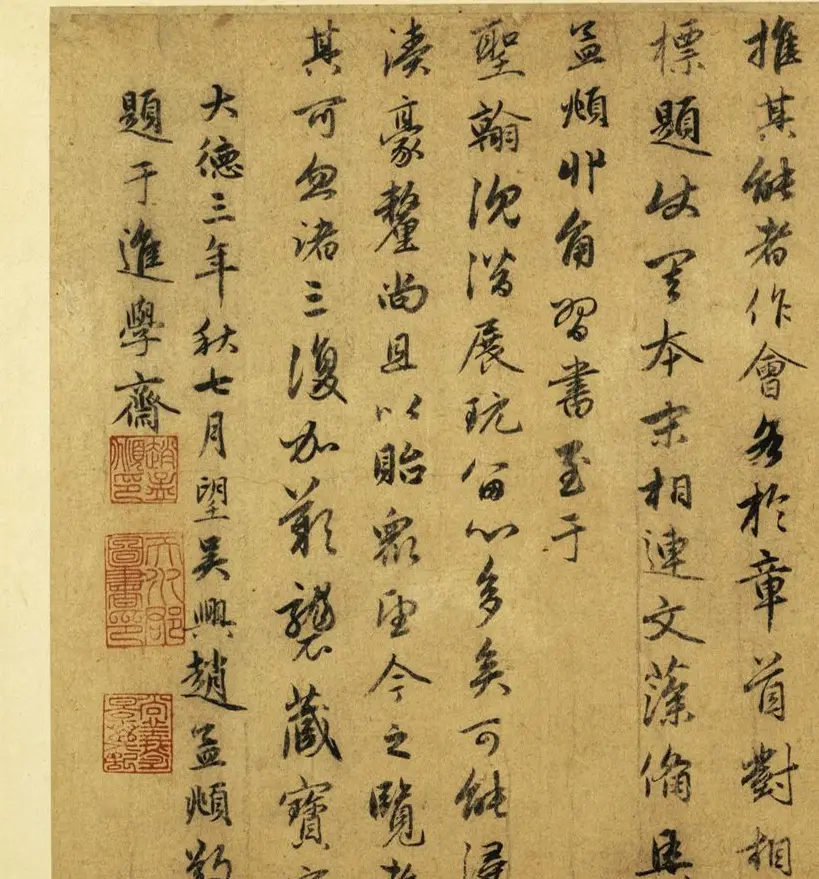 推其能者作會各於章首對相
標題使本末相連文藻備具
孟頫丱角習書至于
聖翰沉潛展玩留心多矣可能
豪釐尚且以貽眾今之覽者
其可忽諸三復加歎襲藏寶
大德三年秋七月望吳興趙孟頫敬
題于進學齋
趙孟頫印
天水郡圖書印